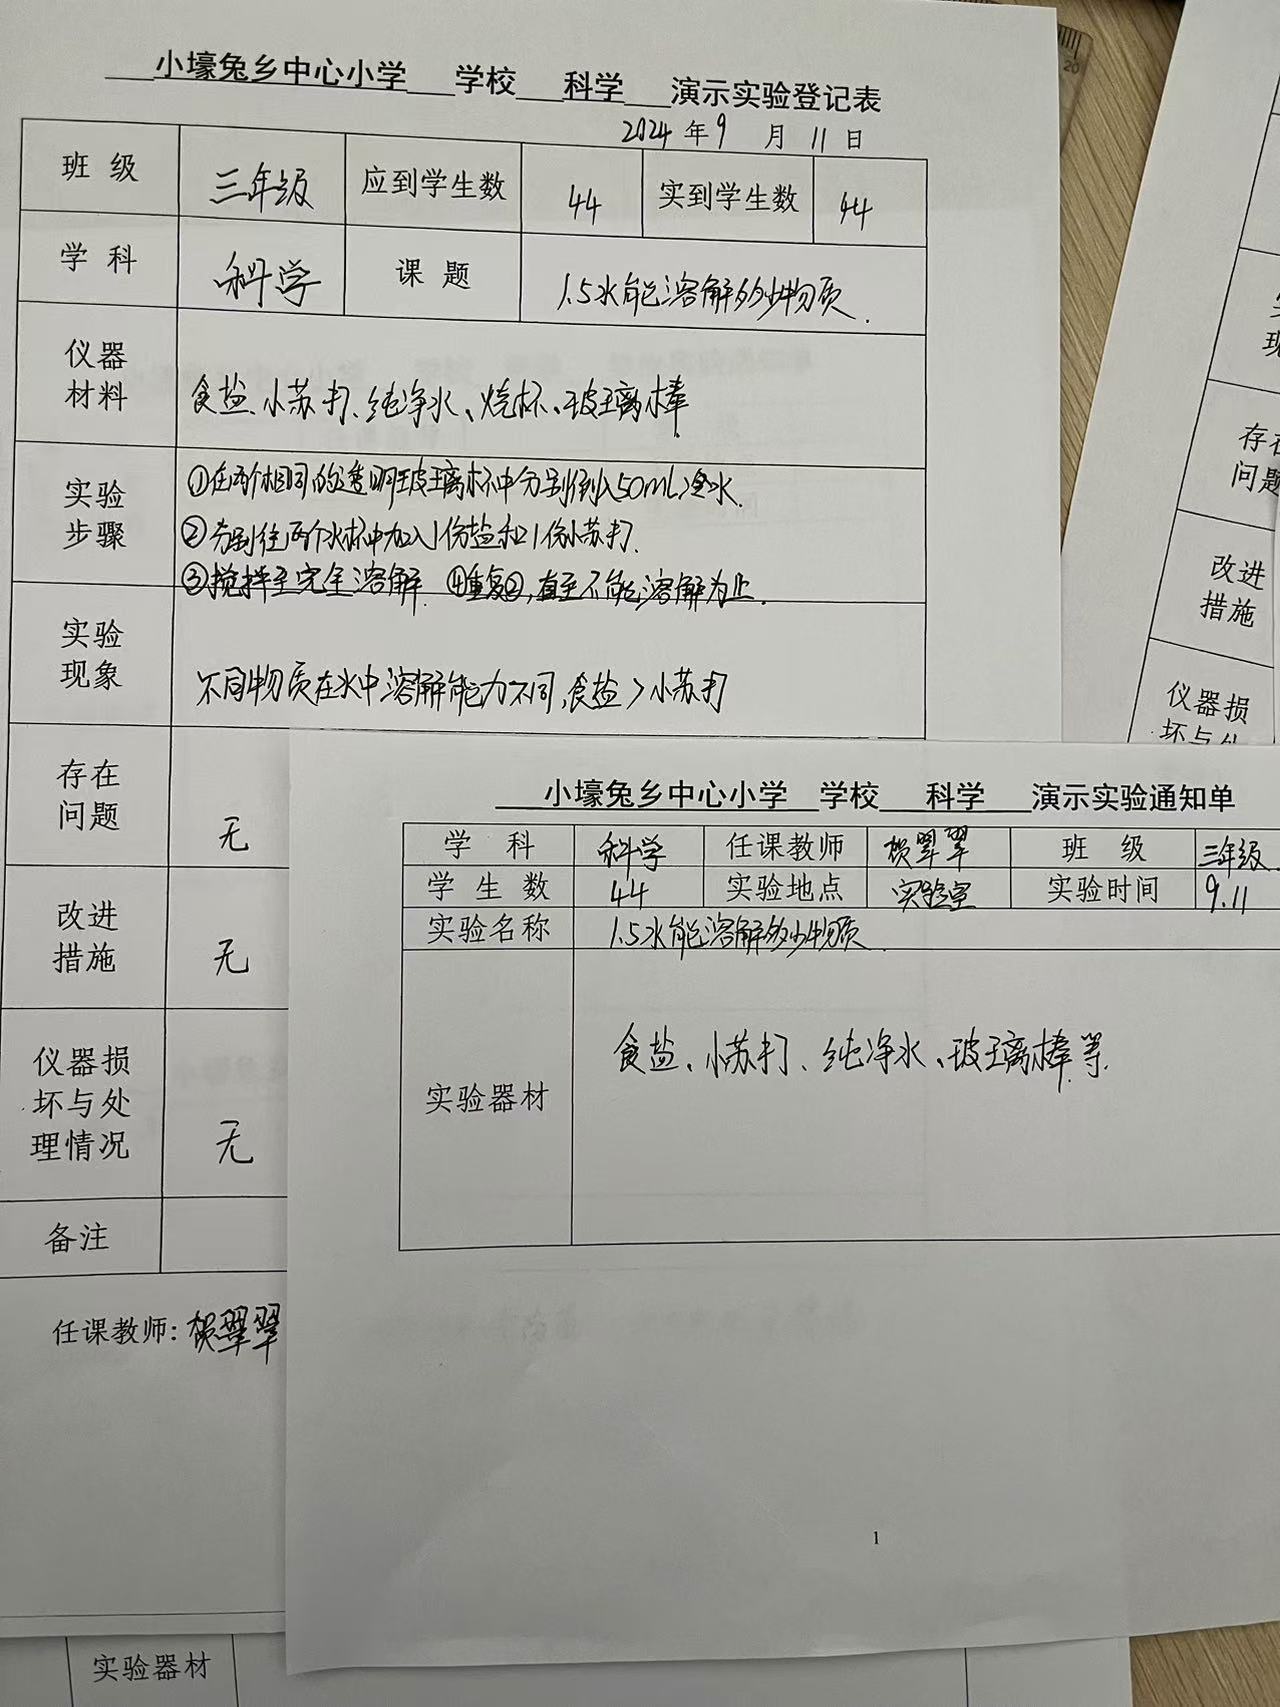 小壕兔乡中心小学 学校 科学 演示实验登记表
2024 年 9 月 11 日
班 级 三年级 应到学生数 44 实到学生数 44
学 科 科学 课 题 1.5水能溶解多少物质.
仪器
材料
食盐、小苏打、纯净水、烧杯、玻璃棒
实验
步骤
①在两个相同的透明玻璃杯中分别倒入50mL冷水.
②分别往两个水杯中加入1份盐和1份小苏打.
③搅拌至完全溶解. ④重复②,直至不能溶解为止.
实验
现象
不同物质在水中溶解能力不同,食盐>小苏打
存在
问题
无
改进
措施
无
仪器损
坏与处
理情况
无
备注
任课教师: 贺翠翠
小壕兔乡中心小学 学校 科学 演示实验通知单
学 科 科学 任课教师 贺翠翠 班 级 三年级
学 生 数 44 实验地点 实验室 实验时间 9.11
实验名称 1.5水能溶解多少物质.
实验器材 食盐、小苏打、纯净水、玻璃棒等.
1
实验器材
存在
问题
改进
措施
仪器损
20